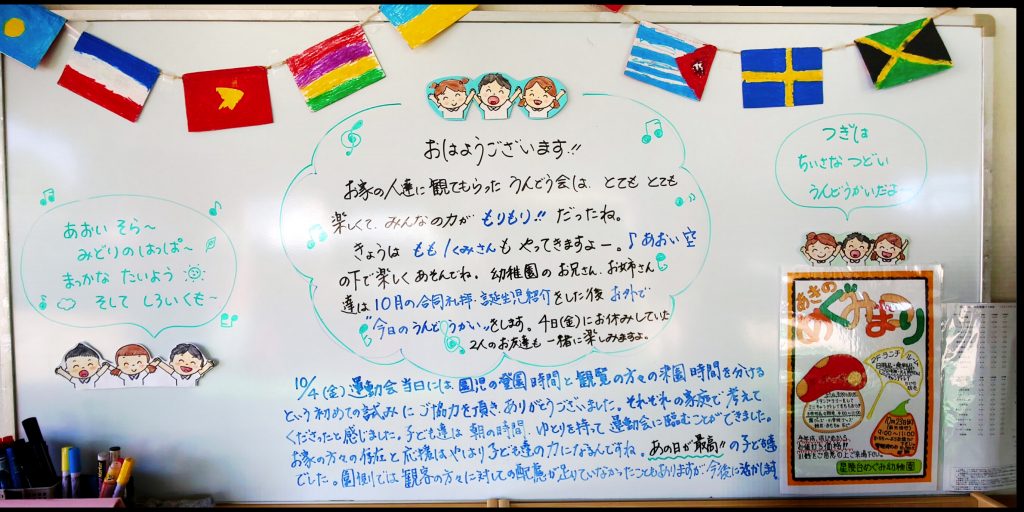 あおい そら～
みどりのはっぱ～
まっかな たいよう
そして しろいくも～
おはようございます!!
お家の人達に観てもらった うんどう会は、とても とても
楽しくて、みんなの力が もりもり!! だったね。
きょうは もも1くみさんも やってきますよー。♪あおい空
の下で楽しく あそんでね。 幼稚園のお兄さん、お姉さん
達は10月の合同礼拝・誕生児紹介をした後 お外で
"今日のうんどうかい"をします。4日(金)にお休みしていた
2人のお友達も 一緒に楽しみますよ。
つぎは
ちいさな つどい
うんどうかいだよ
10/4(金)運動会当日には、園児の登園時間と観覧の方々の来園時間を分ける
という初めての試みにご協力を頂き、ありがとうございました。それぞれの家庭で考えて
くださったと感じました。子ども達は 朝の時間、ゆとりを持って運動会に臨むことができました。
お家の方々の存在と応援はやはり子ども達の力になるんですね。 あの日が最高!! の子ども達
でした。園側では観客の方々に対しての配慮が足りていなかったこともありますが、今後に活かします
あきの
めぐみまつり
ランチ
9:00～11:00
星陵台めぐみ幼稚園